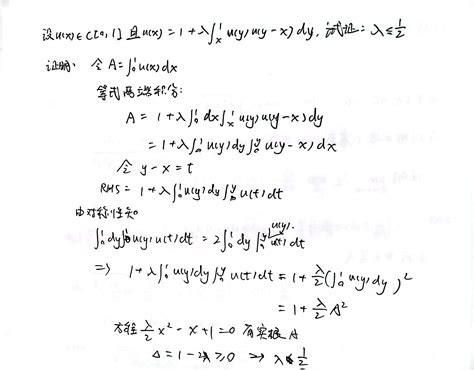 设u(x)∈C[0,1] 且u(x)=1+λ∫ₓ¹u(y)u(y-x)dy, 试证: λ≤1/2
证明: 令 A=∫₀¹u(x)dx
等式两端积分:
A = 1+λ∫₀¹dx∫ₓ¹u(y)u(y-x)dy
= 1+λ∫₀¹u(y)dy∫₀ʸu(y-x)dx
令 y-x=t
RHS = 1+λ∫₀¹u(y)dy∫₀ʸu(t)dt
由对称性知
∫₀¹dy∫₀¹u(y)u(t)dt = 2∫₀¹dy∫₀ʸu(y)u(t)dt
⇒ 1+λ∫₀¹u(y)dy∫₀ʸu(t)dt = 1+λ/2(∫₀¹u(y)dy)²
= 1+λ/2 A²
方程 λ/2 x²-x+1=0 有实根 A
Δ=1-2λ≥0 → λ≤1/2